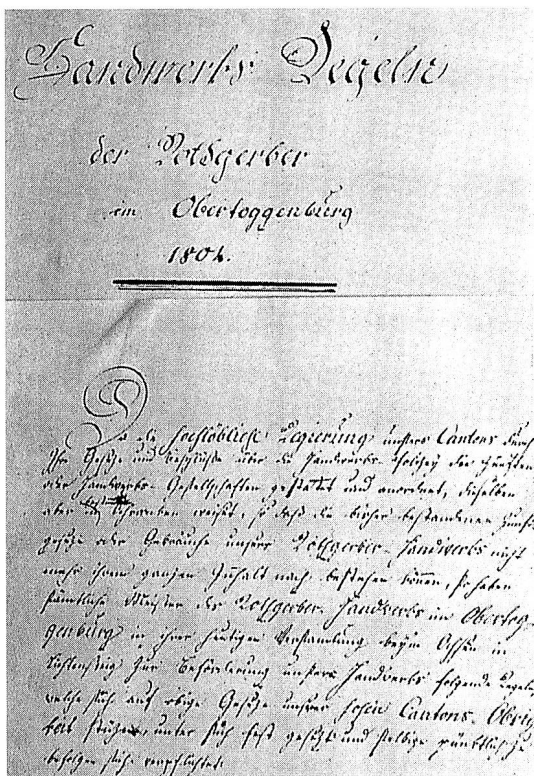 Handwerks Regeln
der Rothgerber
im Obertoggenburg
1804.
Da die hochlöbliche Regierung unsers Cantons durch
Ihre Gesetze und Beschlüsse über die Handwerks-Polizey den Zünften
oder Handwerks-Gesellschaften gestattet und anordnet, dieselben
aber in Schranken weist, so daß die bisher bestandenen Zunft-
gesetze oder Gebräuche unsers Rothgerber-Handwerks nicht
mehr ihrem ganzen Inhalt nach bestehen können, so haben
sämtliche Meister des Rothgerber-Handwerks im Obertog-
genburg in ihrer heutigen Versamlung beym Ochsen in
Lichtensteig zur Beförderung unsers Handwerks folgende Regeln,
welche sich auf obige Gesetze unserer hohen Cantons-Obrig-
keit stüzen, unter sich fest gesezt und selbige pünktlich zu
befolgen sich verpflichtet.